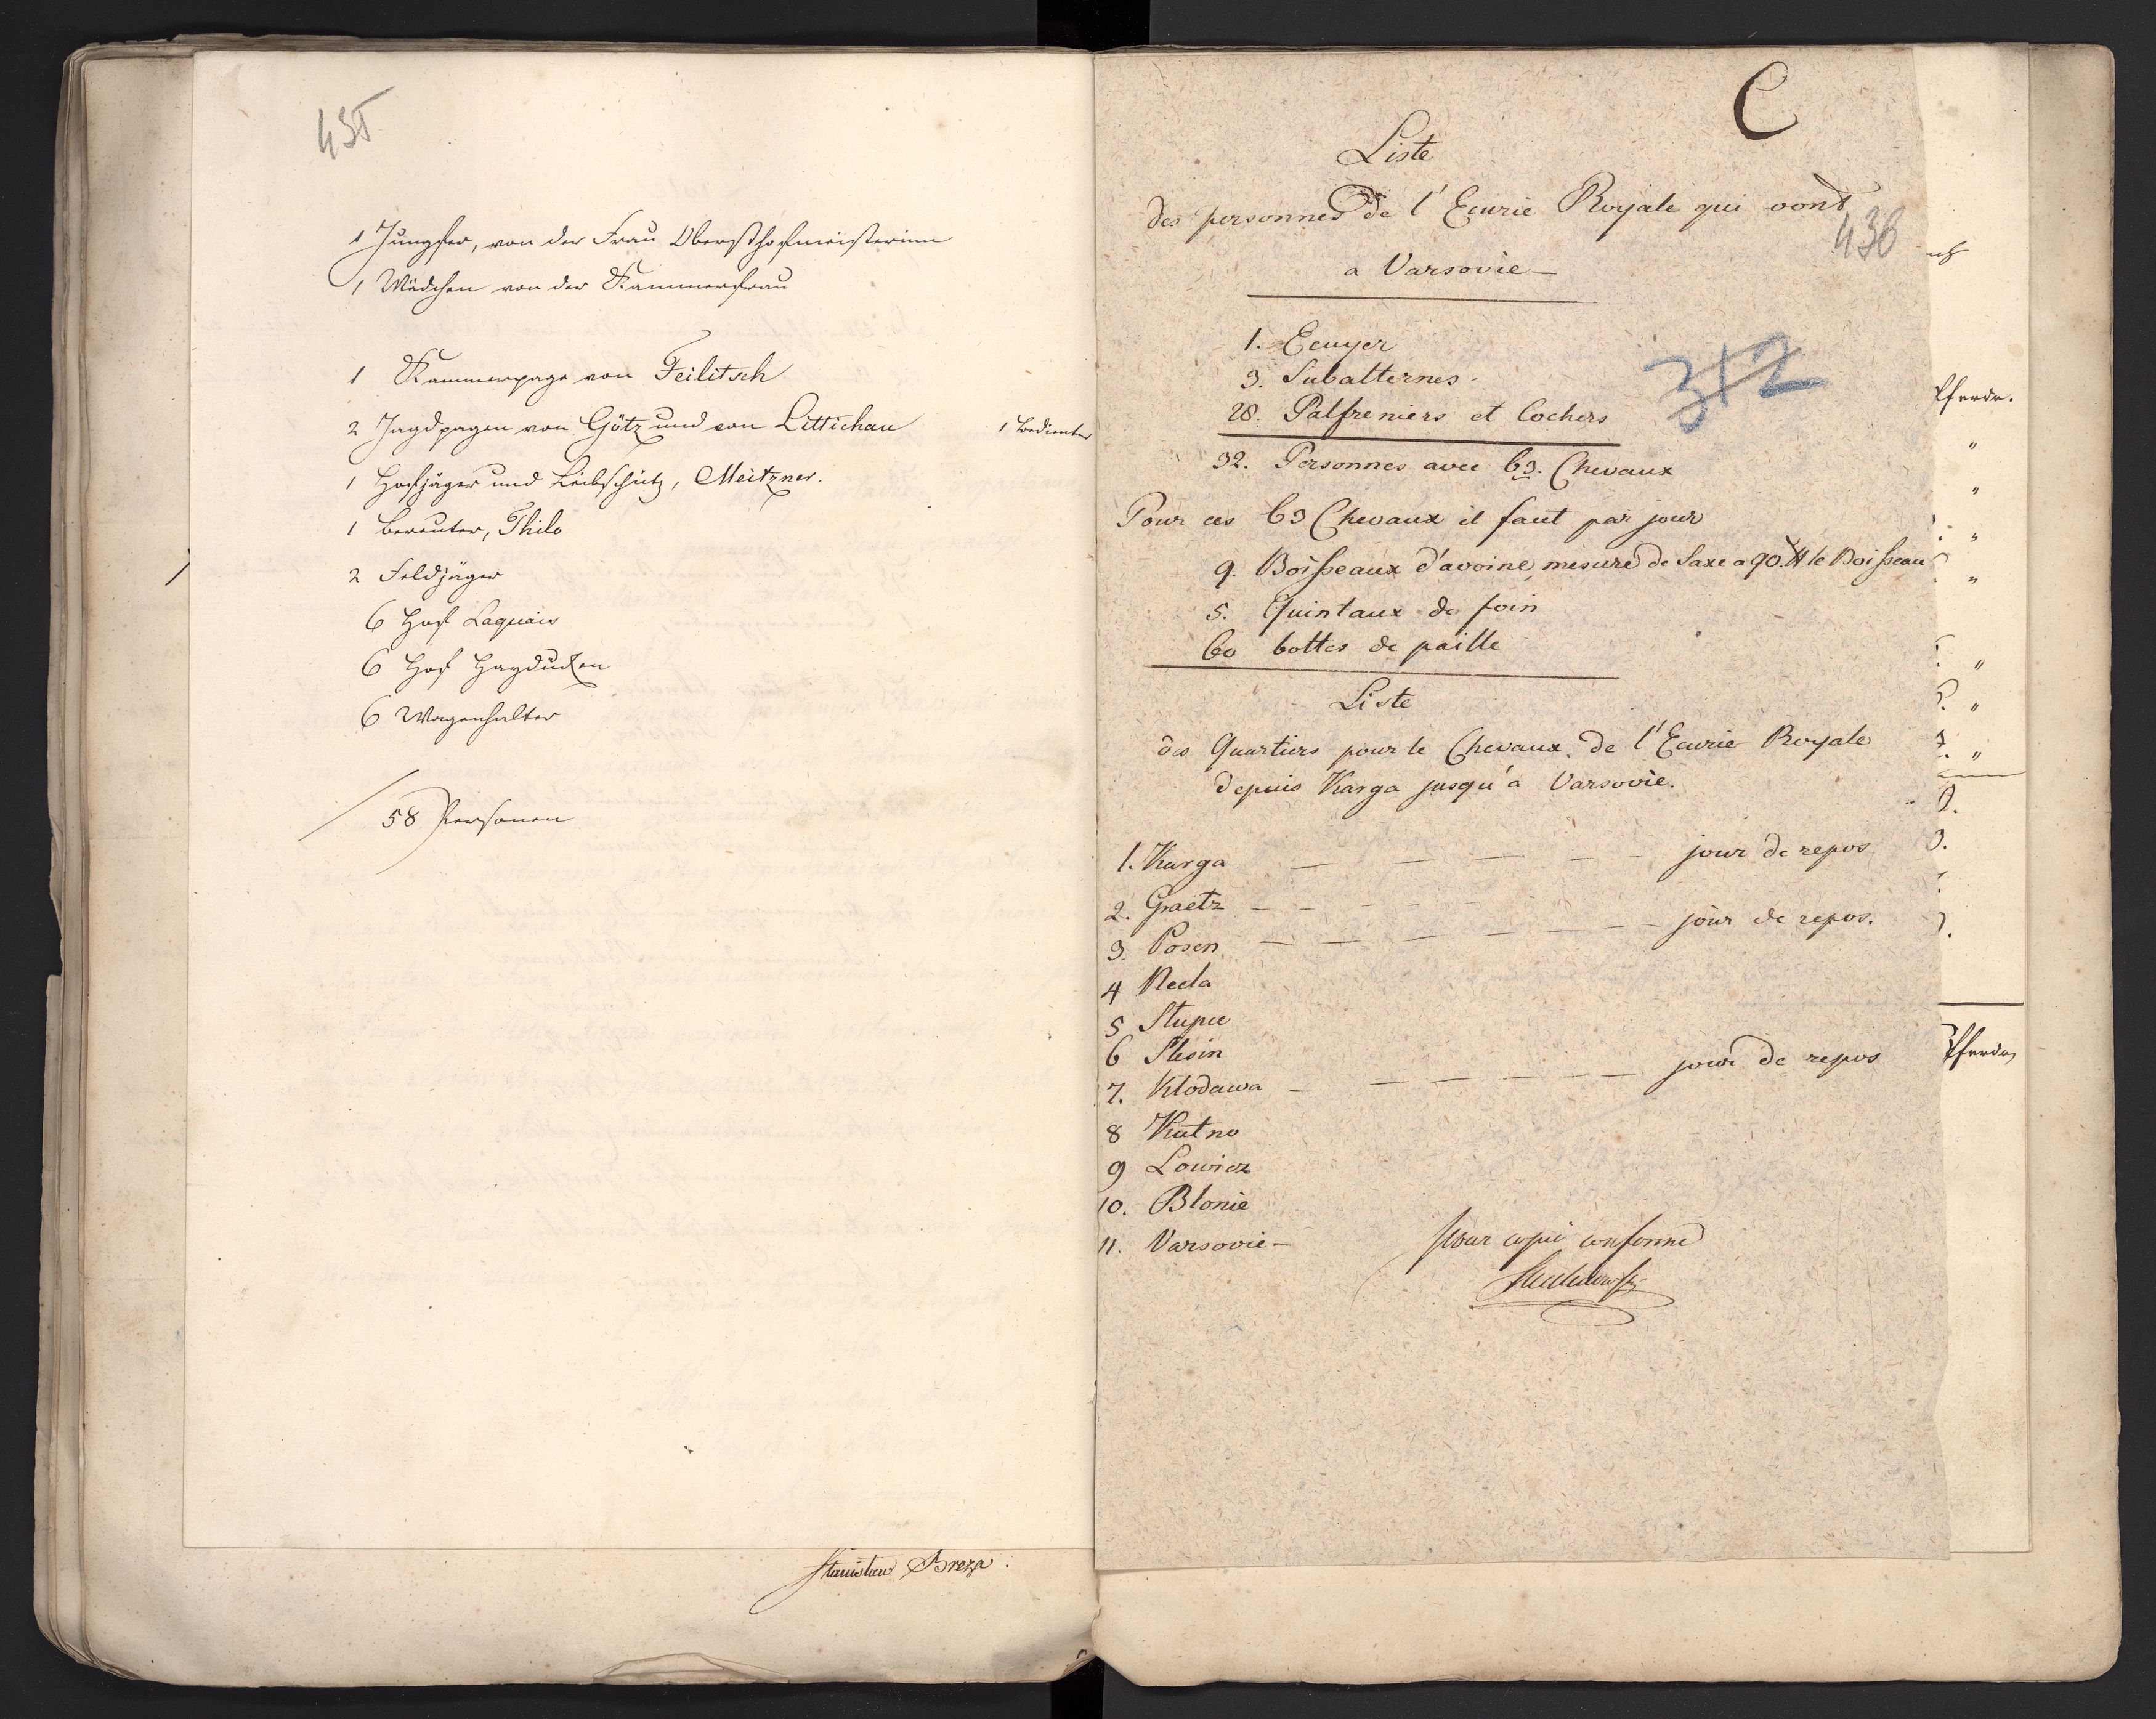 435
1 Jungfer, von der Frau Obersthofmeisterinn
1 Mädchen von der Kammerfrau
1 Kammerpage von Feilitsch
2 Jagdpagen von Götz und von Littichau 1 Bedienter
1 Hofjäger und Leibschütz, Meitzner.
1 Bereuter, Thilo
2 Feldjäger
6 Hof Laquais
6 Hof Hayducken
6 Wagenhalter
58 Personen
Stanislaw Breza.
C
Liste
des personnes de l'Ecurie Royale qui vont
436
a Varsovie —
1. Ecuyer
3. Subalternes.
28. Palfreniers et Cochers
312
32. Personnes avec 63. Chevaux
Pour ces 63 Chevaux il faut par jour
9. Boisseaux d'avoine, mesure de Saxe a 90. ℔ le Boisseau
5. Quintaux de foin
60 bottes de paille
Liste
des Quartiers pour le Chevaux de l'Ecurie Royale
depuis Karga jusqu'a Varsovie.
1. Karga — — — — — jour de repos
2. Graetz — — — —
3. Posen — — — — — — — jour de repos.
4 Neela
5 Stupce
6 Slesin
7. Klodawa — — — — — — jour de repos
8 Kutno
9 Lowicz
10. Blonie
11. Varsovie —
pour copie conforme
Pferde.
Pferde